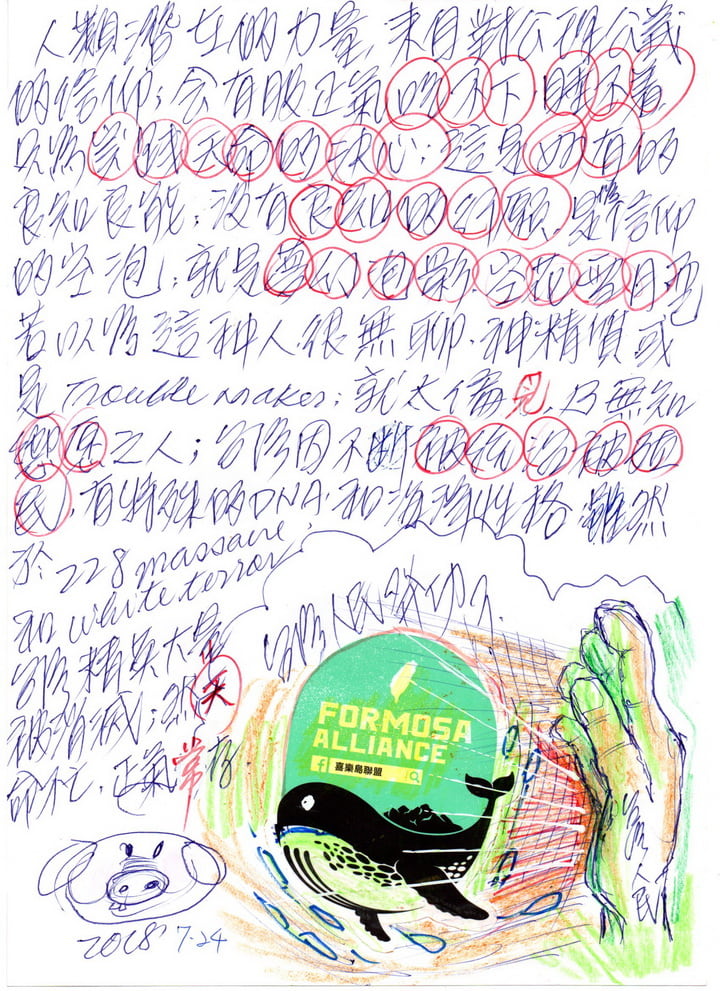 人類潛在的力量,來自對公理公義
的信仰;會有股正氣吃不下、睡不著,
以為實踐天命的決心;這是如有的
良知良能;沒有良知的行願,是信仰
的空泡;就是夢幻泡影、空花雪月也
若以為這種人很無聊、神精質或
是 Trouble maker;就太偏見,及無知
之人;台灣因不斷被統治被殖
民,有特殊的DNA和海洋性格雖然
於:228 massacre,
和 white terror
台灣精英大量
被消滅;然天
命不亡,正氣常存
台灣人民發功了
FORMOSA
ALLIANCE
f 喜樂島聯盟
台灣人民
2018 7-24